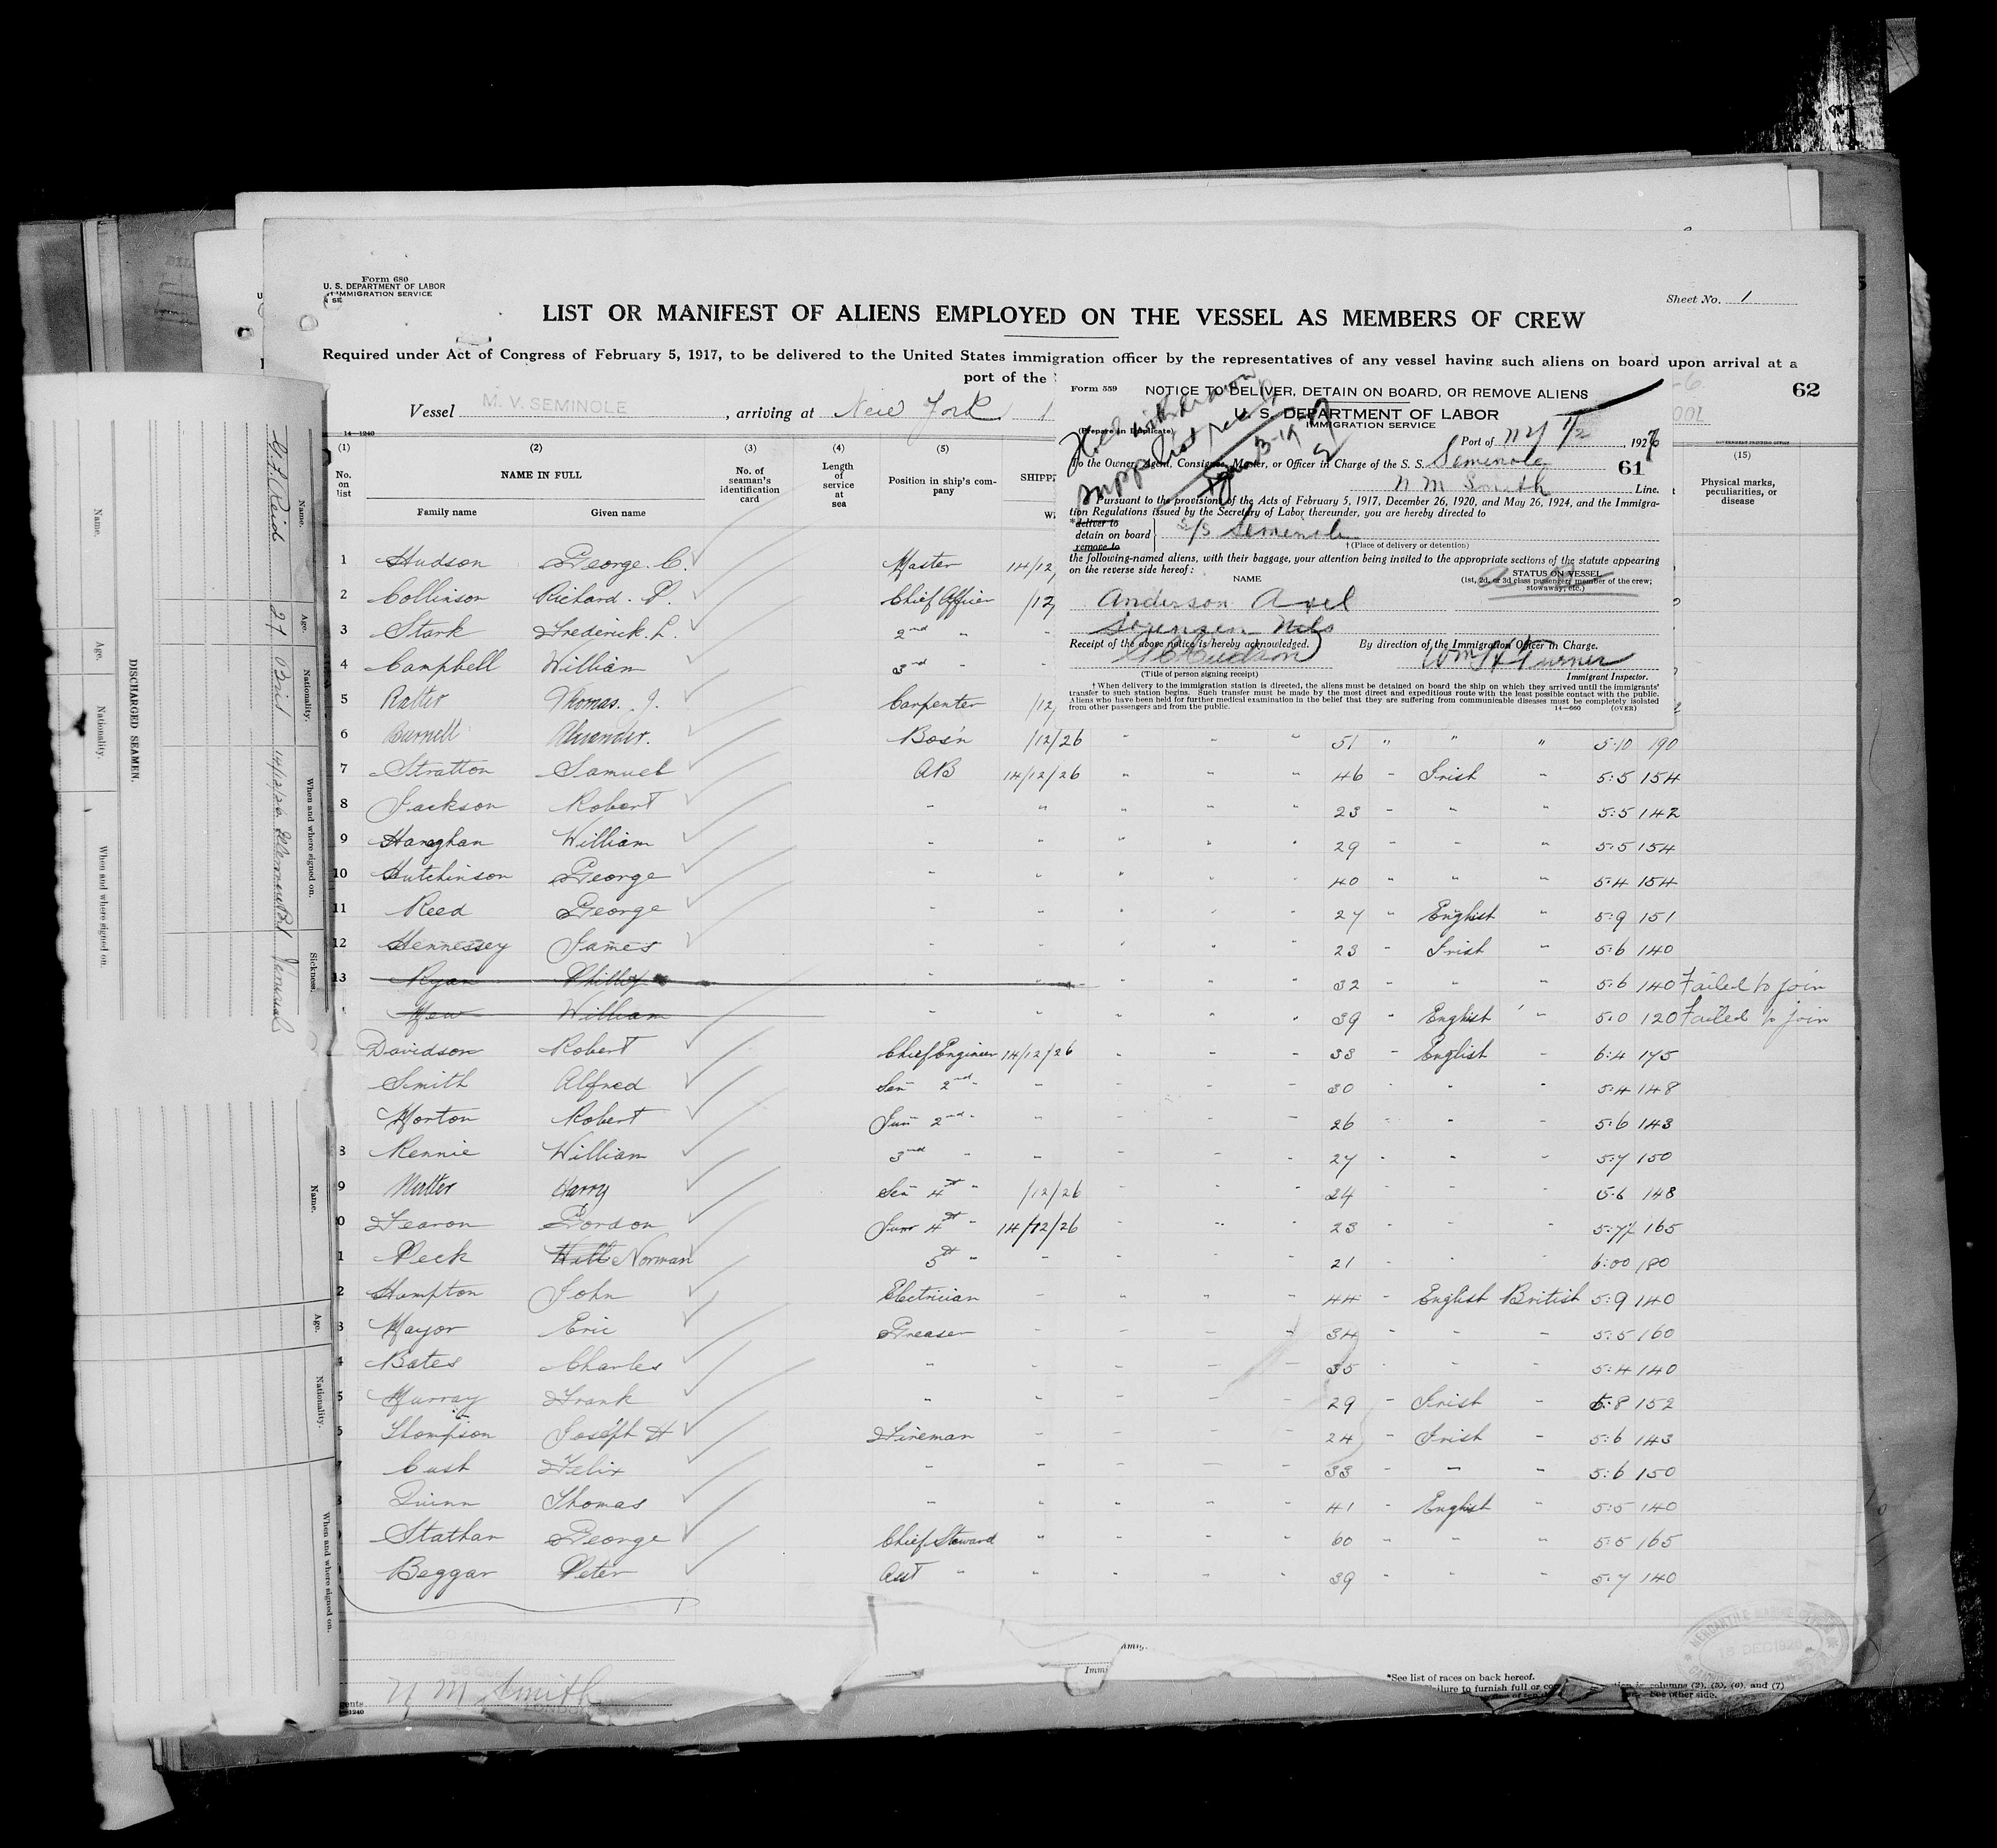 Form 680
U. S. DEPARTMENT OF LABOR
IMMIGRATION SERVICE
Sheet No. 1
LIST OR MANIFEST OF ALIENS EMPLOYED ON THE VESSEL AS MEMBERS OF CREW
Required under Act of Congress of February 5, 1917, to be delivered to the United States immigration officer by the representatives of any vessel having such aliens on board upon arrival at a
port of the
62
Vessel M. V. SEMINOLE, arriving at New York
14—1240
(1) (2) (3) (4) (5) (15)
No. on list
NAME IN FULL
Family name Given name
No. of seaman's identification card
Length of service at sea
Position in ship's company
SHIPP
Physical marks, peculiarities, or disease
Form 559
NOTICE TO DELIVER, DETAIN ON BOARD, OR REMOVE ALIENS
U. S. DEPARTMENT OF LABOR
IMMIGRATION SERVICE
(Prepare in Duplicate)
Port of NY 1/2, 1927
To the Owner, Agent, Consignee, Master, or Officer in Charge of the S. S. Seminole 61
N M Smith Line.
Pursuant to the provisions of the Acts of February 5, 1917, December 26, 1920, and May 26, 1924, and the Immigra-
tion Regulations issued by the Secretary of Labor thereunder, you are hereby directed to
*deliver to
detain on board S/S Seminole
remove to
†(Place of delivery or detention)
the following-named aliens, with their baggage, your attention being invited to the appropriate sections of the statute appearing
on the reverse side hereof:
NAME
STATUS ON VESSEL
(1st, 2d, or 3d class passenger; member of the crew;
stowaway, etc.)
Anderson Axel
Sorensen Nils
Receipt of the above notice is hereby acknowledged. By direction of the Immigration Officer in Charge.
G C Hudson Wm H Turner
(Title of person signing receipt) Immigrant Inspector.
† When delivery to the immigration station is directed, the aliens must be detained on board the ship on which they arrived until the immigrants'
transfer to such station begins. Such transfer must be made by the most direct and expeditious route with the least possible contact with the public.
Aliens who have been held for further medical examination in the belief that they are suffering from communicable diseases must be completely isolated
from other passengers and from the public. 14—660 (OVER)
1 Hudson George. C. Master 14/12,
2 Collinson Richard. P. Chief Officer /12,
3 Stark Frederick. L. 2nd "
4 Campbell William 3rd "
5 Ratter Thomas. J. Carpenter /12,
6 Burnell Alexander. Bos'n /12/26 " " " 51 " " " 5:10 190
7 Stratton Samuel AB 14/12/26 " " " 46 " Irish " 5:5 154
8 Jackson Robert " " " " " 23 " " " 5:5 142
9 Hanaghan William " " " " " 29 " " " 5:5 154
10 Hutchinson George " " " " " 40 " " " 5:4 154
11 Reed George " " " " " 27 " English " 5:9 151
12 Hennessey James " " " " " 23 " Irish " 5:6 140
13 Ryan Phillip " " " " " 32 " " " 5:6 140 Failed to join
Mew William " " " " " 39 " English " 5:0 120 Failed to join
Davidson Robert Chief Engineer 14/12/26 " " " 33 " English " 6:4 175
Smith Alfred Sen 2nd " " " " " 30 " " " 5:4 148
Morton Robert Jun 2nd " " " " " 26 " " " 5:6 143
8 Rennie William 3rd " " " " " 27 " " " 5:7 150
9 Nutter Harry Sen 4th " /12/26 " " " 24 " " " 5:6 148
0 Fearon Gordon Junr 4th " 14/12/26 " " " 23 " " " 5:7½ 165
1 Peck Norman 5th " " " " " 21 " " " 6:00 180
2 Hampton John Electrician " " " " 44 " English British 5:9 140
3 Mayor Eric Greaser " " " " 34 " " " 5:5 160
4 Bates Charles " " " " " 35 " " " 5:4 140
5 Murray Frank " " " " " 29 " Irish " 5:8 152
6 Thompson Joseph H Fireman " " " " 24 " Irish " 5:6 143
7 Cush Felix " " " " " 33 " " " 5:6 150
8 Quinn Thomas " " " " " 41 " English " 5:5 140
Stathan George Chief Steward " " " " 60 " " " 5:5 165
Beggar Peter Asst " " " " " 39 " " " 5:7 140
N M Smith
*See list of races on back hereof.
columns (2), (5), (6), and (7)
See other side.
MERCANTILE MARINE OFFICE
18 DEC 1926
DISCHARGED SEAMEN.
Name. Age. Nationality. When and where signed on. Sickness.
Reid 27 Brit 14/12/26
Name. Age. Nationality. When and where signed on.